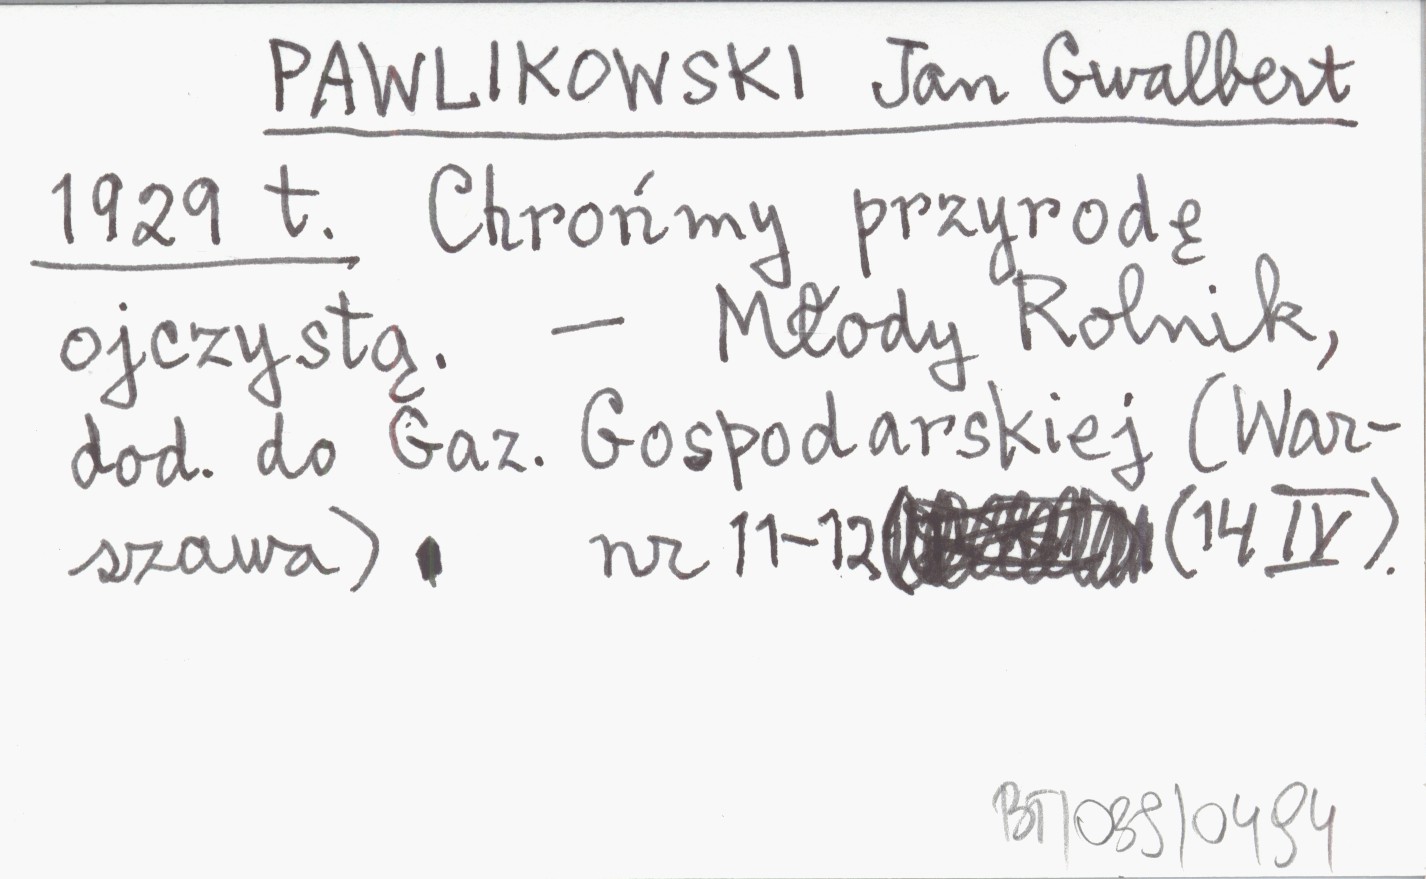 PAWLIKOWSKI Jan Gwalbert
1929 t. Chrońmy przyrodę
ojczystą. — Młody Rolnik,
dod. do Gaz. Gospodarskiej (War-
szawa). nr 11-12 (14 IV).